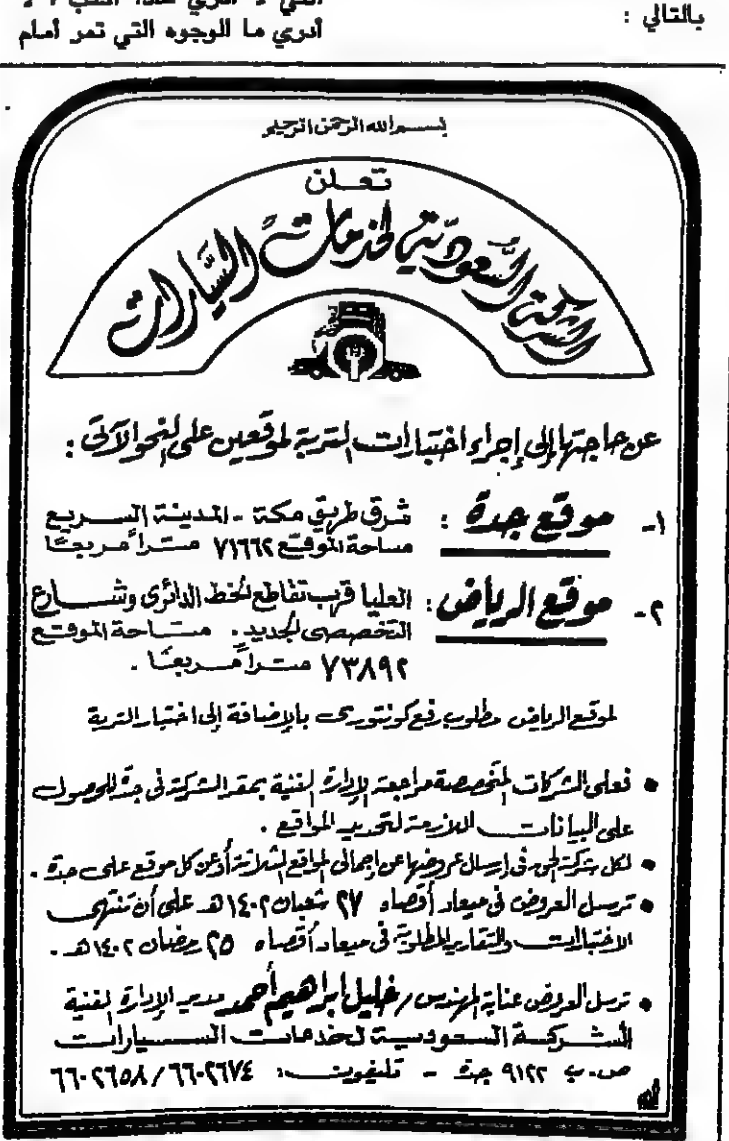 بالتالي :
أدري ما الوجوه التي تمر أمام
بسم الله الرحمن الرحيم
تعلن
الشركة السعودية لخدمات السيارات
عن حاجتها إلى إجراء اختبارات التربة لموقعين على النحو الآتي :
١- موقع جدة : شرق طريق مكة - المدينة السريع
مساحة الموقع ٧١٦٦٢ متراً مربعاً
٢- موقع الرياض : العليا قرب تقاطع الخط الدائرى وشارع
التخصصى الجديد . مساحة الموقع
٧٣٨٩٢ متراً مربعاً .
لموقع الرياض مطلوب رفع كونتورى بالإضافة إلى اختبار التربة
• فعلى الشركات المتخصصة مراجعة الإدارة الفنية بمقر الشركة فى جدة للحصول
على البيانات اللازمة لتحديد المواقع .
• لكل شركة الحق فى إرسال عروضها عن إجمالى المواقع الثلاثة أو عن كل موقع على حدة .
• ترسل العروض فى ميعاد أقصاه ٢٧ شعبان ١٤٠٢هـ على أن تنتهى
الاختبارات والتقارير المطلوبة فى ميعاد أقصاه ٢٥ رمضان ١٤٠٢هـ .
• ترسل العروض عناية المهندس / خليل ابراهيم أحمد مدير الإدارة الفنية
الشركة السعودية لخدمات السيارات
ص.ب ٩١٢٢ جدة - تليفون : ٦٦٠٢٦٧٤ / ٦٦٠٢٦٥٨